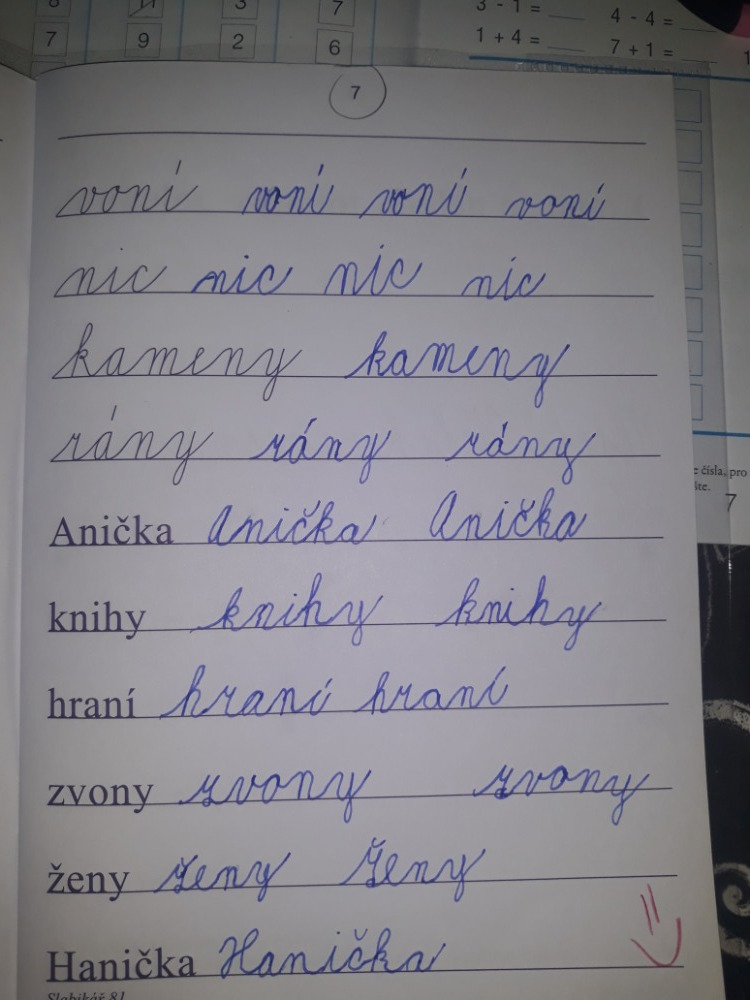 8 11 3 7
7 9 2 6
3 - 1 = ___ 4 - 4 = ___
1 + 4 = ___ 7 + 1 = ___
7
voní voní voní voní
nic nic nic nic
kameny kameny
rány rány rány
Anička Anička Anička
knihy knihy knihy
hraní hraní hraní
zvony zvony zvony
ženy ženy ženy
Hanička Hanička
Slabikář 81
čísla, pro
7